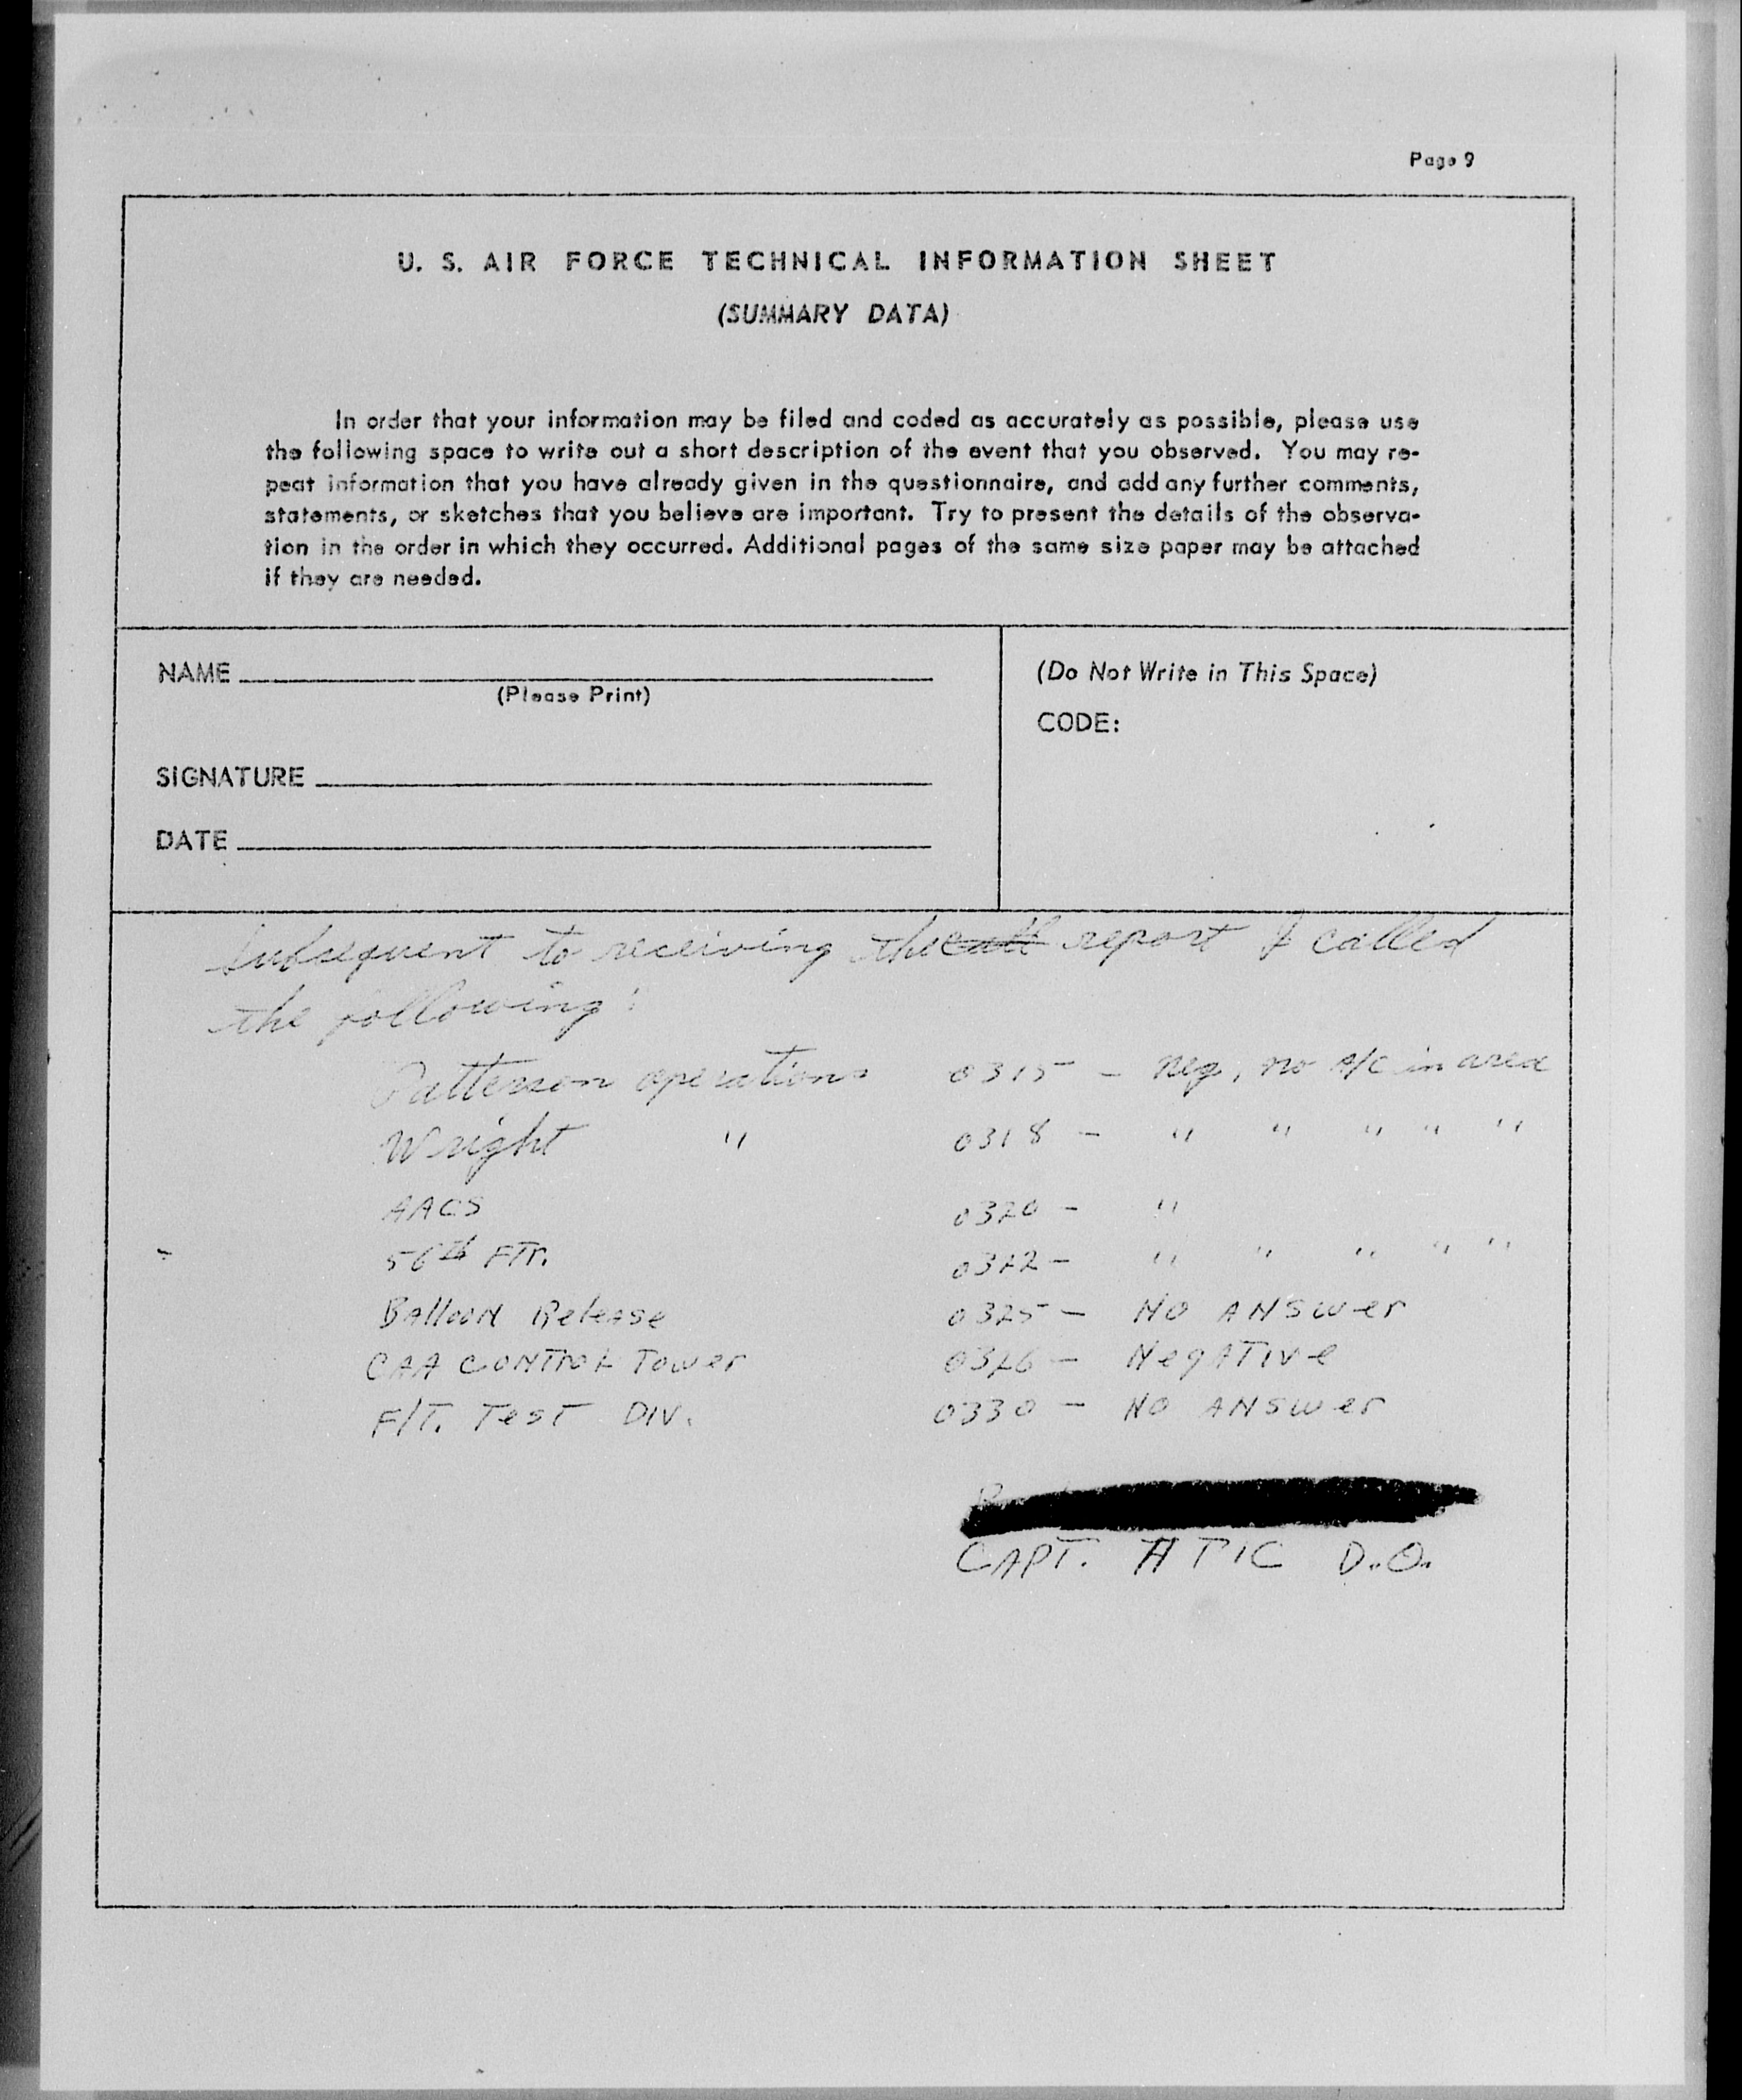 Page 9
U. S. AIR FORCE TECHNICAL INFORMATION SHEET
(SUMMARY DATA)
In order that your information may be filed and coded as accurately as possible, please use
the following space to write out a short description of the event that you observed. You may re-
peat information that you have already given in the questionnaire, and add any further comments,
statements, or sketches that you believe are important. Try to present the details of the observa-
tion in the order in which they occurred. Additional pages of the same size paper may be attached
if they are needed.
NAME
(Please Print)
SIGNATURE
DATE
(Do Not Write in This Space)
CODE:
Subsequent to receiving the call report I called
the following:
Patterson operations 0315 - Neg, no A/C in area
Wright " 0318 - " " " " "
AACS 0320 - "
56th FTR. 0322 - " " " " "
Balloon Release 0325 - NO ANSWER
CAA CONTROL TOWER 0326 - Negative
F/T. TEST DIV. 0330 - NO ANSWER
CAPT. ATIC D.O.